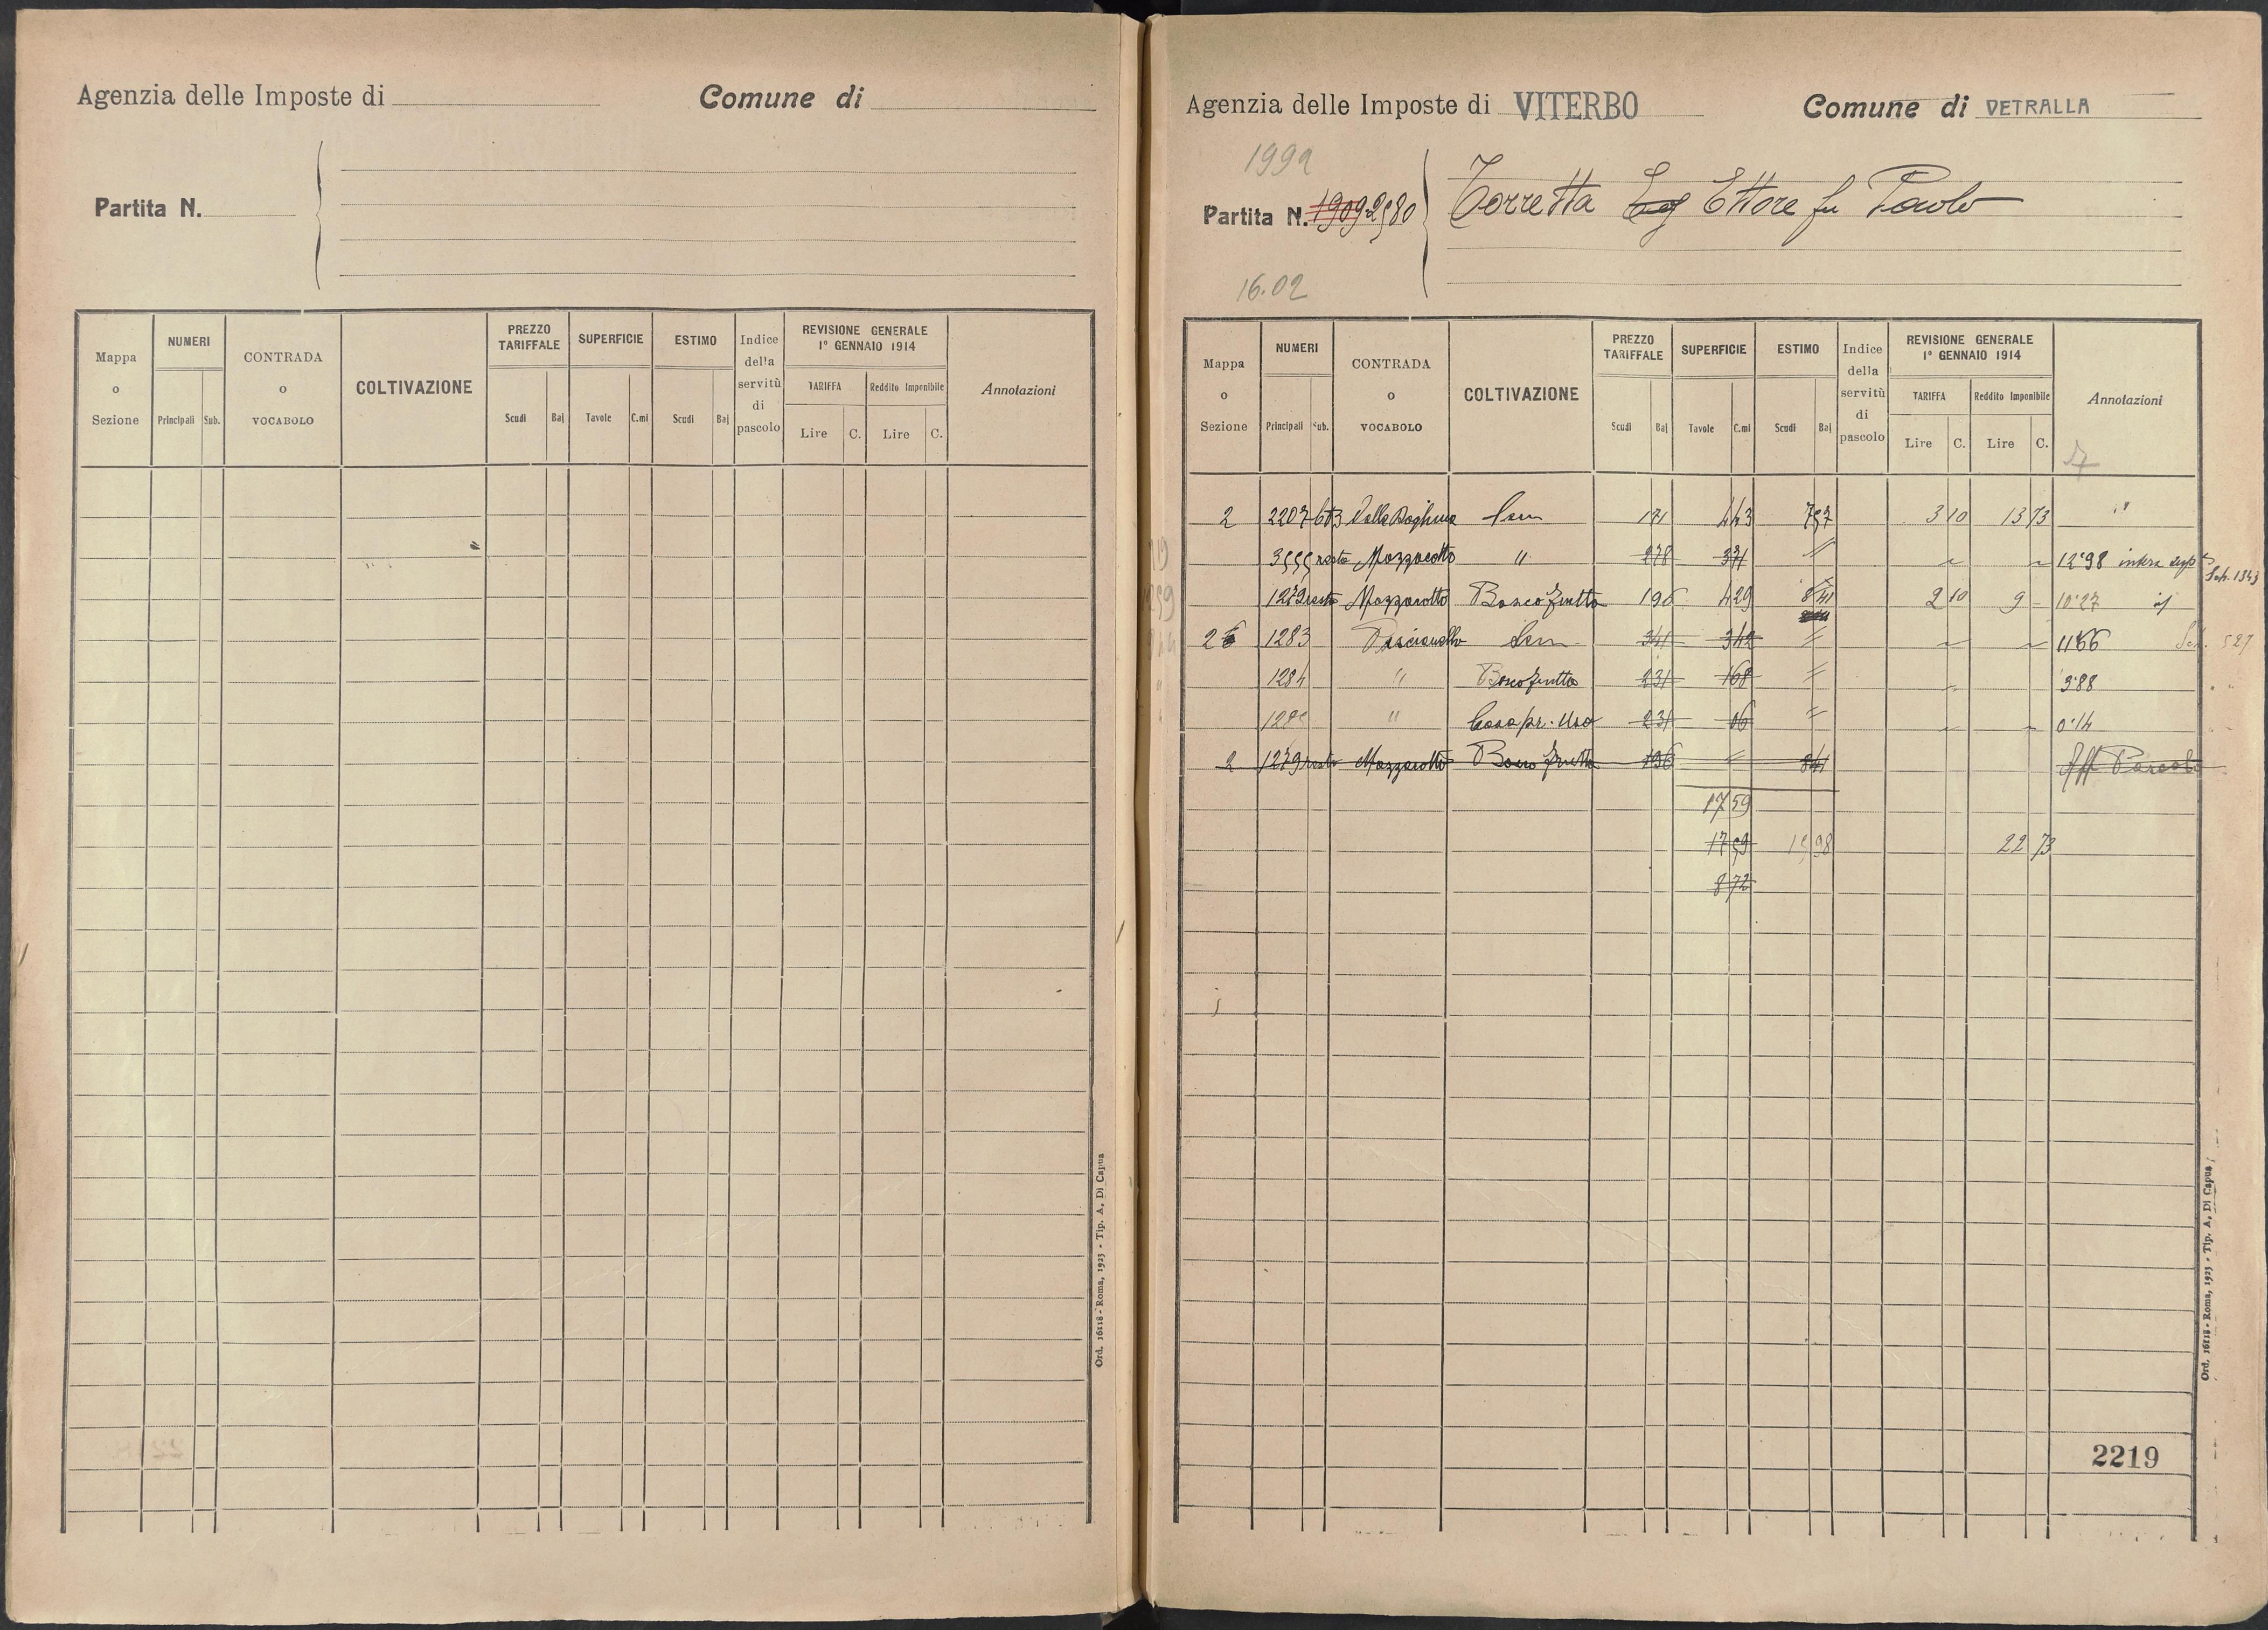 Agenzia delle Imposte di Comune di
Partita N.
Mappa o Sezione NUMERI Principali Sub. CONTRADA o VOCABOLO COLTIVAZIONE PREZZO TARIFFALE Scudi Baj SUPERFICIE Tavole C.mi ESTIMO Scudi Baj Indice della servitù di pascolo REVISIONE GENERALE 1° GENNAIO 1914 TARIFFA Lire C. Reddito Imponibile Lire C. Annotazioni
Ord. 16118 - Roma, 1923 - Tip. A. Di Capua
Agenzia delle Imposte di VITERBO Comune di VETRALLA
1992
Partita N. 1909 2580 Torretta Ettore fu Paolo
16.02
Mappa o Sezione NUMERI Principali Sub. CONTRADA o VOCABOLO COLTIVAZIONE PREZZO TARIFFALE Scudi Baj SUPERFICIE Tavole C.mi ESTIMO Scudi Baj Indice della servitù di pascolo REVISIONE GENERALE 1° GENNAIO 1914 TARIFFA Lire C. Reddito Imponibile Lire C. Annotazioni
2 2207 Sem 171 4 43 7 57 3 10 13 73 "
3555 resto Mazzocotto " 278 12.98 intera sup
Sch. 1343
1279 resto Mazzocotto Bosco frutto 196 4 29 8 41 2 10 9 - 10.27 id
2 1283 Sem 341 3 42 11.66 527
1284 " Bosco frutto 231 1 68 3.88
1285 " Casa pr. uso 231 06 0.14
2 1279 resto Mazzocotto Bosco frutto 196 8 41 Aff Pascolo
17 59
17 59 15 98 22 73
8 72
2219
Ord. 16118 - Roma, 1923 - Tip. A. Di Capua